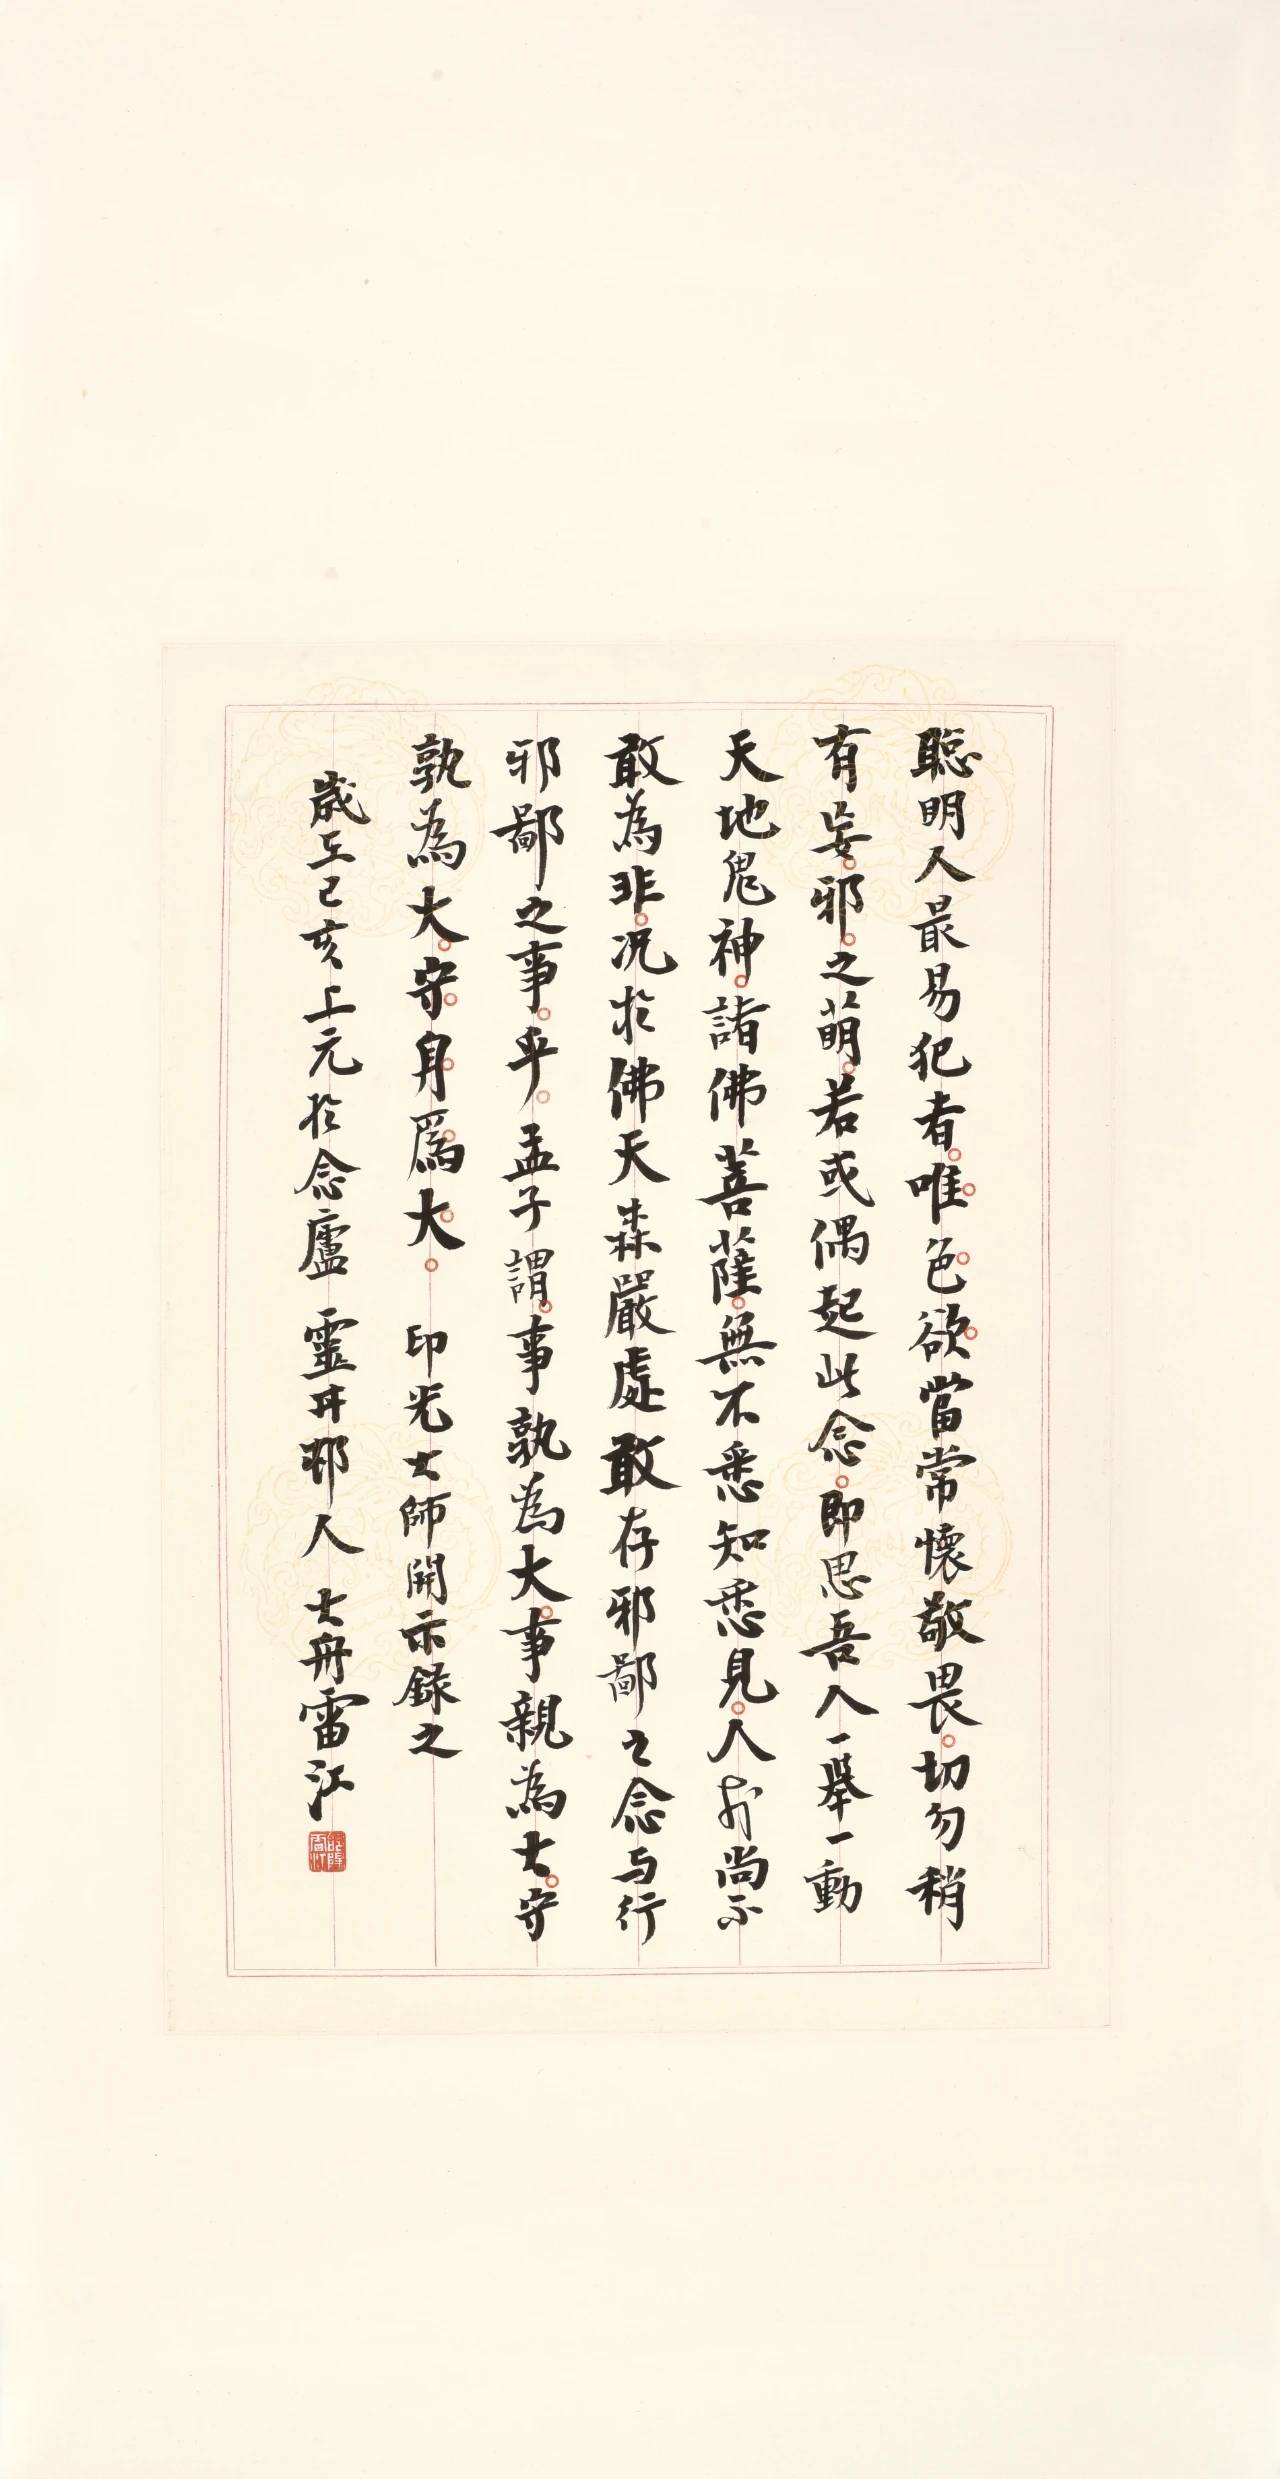 聰明人最易犯者唯色欲當常懷敬畏切勿稍
有妄邪之萌若或偶起此念即思吾人一舉一動
天地鬼神諸佛菩薩無不悉知悉見人前尚不
敢為非況於佛天森嚴處敢存邪鄙之念与行
邪鄙之事乎孟子謂事孰為大事親為大守
孰為大守身爲大 印光大師開示錄之
歲在己亥上元於念廬 靈井邨人 大舟雷江